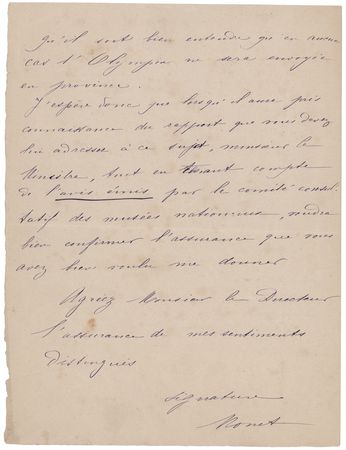 qu'il soit bien entendu qu'en aucun
cas l'Olympia ne sera envoyée
en province.
J'espère donc que lorsqu'il aura pris
connaissance du rapport que vous devez
lui adresser à ce sujet, monsieur le
Ministre, tout en tenant compte
de l'avis émis par le comité consul-
tatif des musées nationaux, voudra
bien confirmer l'assurance que vous
avez bien voulu me donner
Agréez Monsieur le Directeur
l'assurance de mes sentiments
distingués
signature
Monet